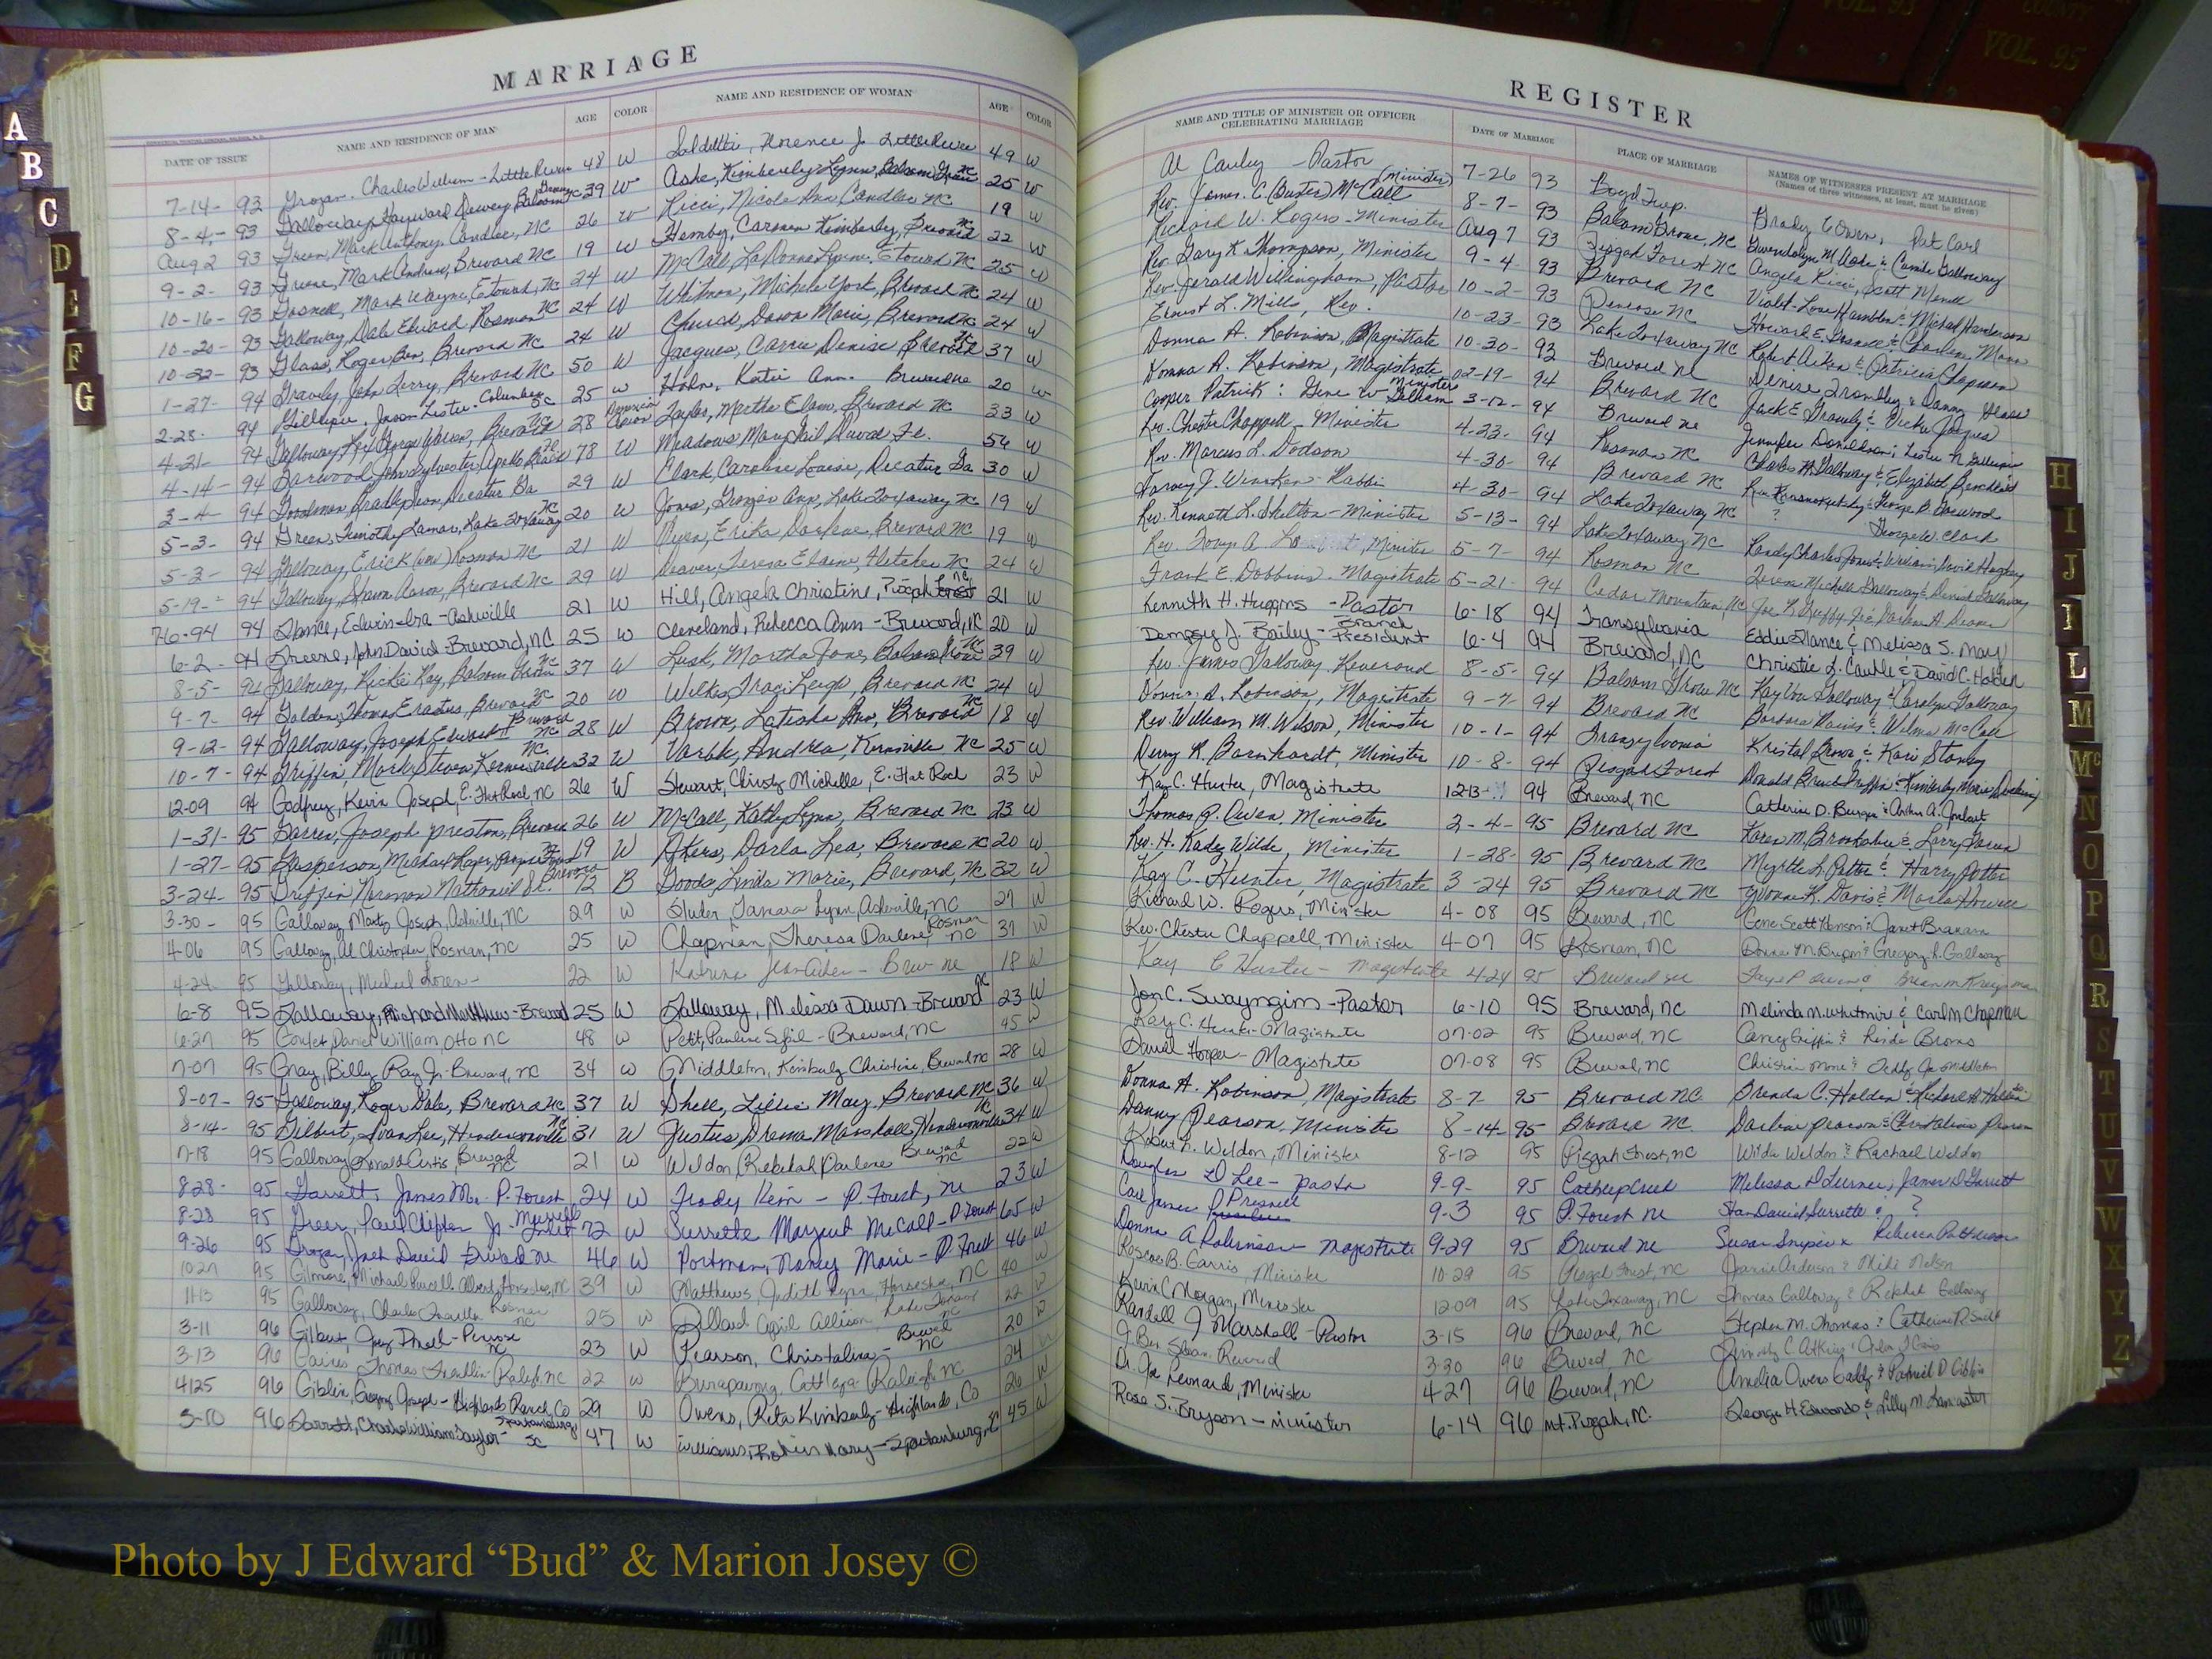 MARRIAGE
DATE OF ISSUE NAME AND RESIDENCE OF MAN AGE COLOR NAME AND RESIDENCE OF WOMAN AGE COLOR
7-14- 93 Grogan, Charles William - Little River 48 W Florence J. Little River 49 W
8-4- 93 Galloway, Hayward Dewey Balsam Grove NC 39 W Ashe, Kimberly Lynn, Balsam Grove NC 25 W
Aug 2 93 Green, Mark Anthony, Candler, NC 26 W Ricci, Nicole Ann Candler NC 19 W
9-2- 93 Greene, Mark Andrew, Brevard NC 19 W Hemby, Carmen Kimberly, Brevard NC 22 W
10-16- 93 Gosnell, Mark Wayne, Etowah, NC 24 W McCall, LaDonna Etowah NC 25 W
10-20- 93 Galloway, Dale Edward Rosman NC 24 W Whitmon, Michele York, Brevard NC 24 W
10-22- 93 Glass, Roger Ben, Brevard NC 24 W Church, Dawn Marie, Brevard NC 24 W
1-27- 94 Gravely, John Jerry, Brevard NC 50 W Jacques, Carrie Denise Brevard NC 37 W
2-28- 94 Gillespie, Jason Lester - Columbus NC 25 W Hahn, Katie Ann. Brevard NC 20 W
4-21- 94 Galloway, George Brevard NC 28 Taylor, Martha Elam, Brevard NC 33 W
4-14- 94 Garwood, John Sylvester, Apollo Beach Fl 78 W Meadows Mary Gail, Fl. 54 W
3-4- 94 Goodman, Bradley Decatur Ga 29 W Clark, Caroline Louise, Decatur Ga 30 W
5-3- 94 Green, Timothy Lamar, Lake Toxaway NC 20 W Jones, Ginger Ann, Lake Toxaway NC 19 W
5-3- 94 Galloway, Erick Rosman NC 21 W Owen, Erika Darlene, Brevard NC 19 W
5-19- 94 Galloway, Shawn Aaron, Brevard NC 29 W Deaver, Teresa Elaine, Fletcher NC 24 W
94 Glance, Edwin Ira - Ashville 21 W Hill, Angela Christine, Pisgah Forest NC 21 W
6-2- 94 Greene, John David - Brevard, NC 25 W Cleveland, Rebecca Ann - Brevard, NC 20 W
8-5- 94 Galloway, Rickie Ray, Balsam Grove NC 37 W Lusk, Martha Jane, Balsam Grove NC 39 W
9-7- 94 Golden, Thomas Erastus, Brevard NC 20 W Wilkes, Traci Leigh, Brevard NC 24 W
9-12- 94 Galloway, Joseph Edward II Brevard NC 28 W Brown, Latisha Ann, Brevard NC 18 W
10-7- 94 Griffin, Mark Steven Kernersville NC 32 W Andrea, Kernersville NC 25 W
12-09 94 Godfrey, Kevin Joseph, E. Flat Rock, NC 26 W Stewart, Christy Michelle, E. Flat Rock 23 W
1-31- 95 Garren, Joseph Preston, Brevard 26 W McCall, Kathy Lynn, Brevard NC 23 W
1-27- 95 Gasperson, Michael 19 W Akers, Darla Lea, Brevard NC 20 W
3-24- 95 Griffin Norman Nathaniel Sr. Brevard 72 B Goods Linda Marie, Brevard, NC 32 W
3-30- 95 Galloway, Marty Joseph, Ashville, NC 29 W Tamara Lynn, Asheville, NC 27 W
4-06 95 Galloway, Al Christopher, Rosman, NC 25 W Chapman, Theresa Darlene, Rosman NC 31 W
4-24 95 Galloway, Michael Loren - 22 W Katrina - Brev NC 18 W
6-8 95 Galloway, Richard Matthew - Brevard 25 W Galloway, Melissa Dawn - Brevard NC 23 W
6-27 95 Daniel William, Otto NC 48 W Pett, Pauline - Brevard, NC 45 W
7-07 95 Gray, Billy Ray Jr - Brevard, NC 34 W Middleton, Kimberly Christine, Brevard NC 28 W
8-07- 95 Galloway, Roger Dale, Brevard NC 37 W Shell, Lillie May, Brevard NC 36 W
8-14- 95 Gilbert, Ivan Lee, Hendersonville NC 31 W Justus, Drema Marshall, Hendersonville NC 34 W
7-18 95 Galloway, Ronald Curtis, Brevard NC 21 W Weldon, Rebekah Darlene Brevard NC 22 W
8-28- 95 Garrett, James M. P. Forest 24 W Keri - P. Forest, NC 23 W
8-28 95 Greer, Paul Clifton Jr. 72 W Surrette Margaret McCall - P. Forest 65 W
9-26 95 Grogan, Jack David Brevard NC 46 W Portman, Nancy Marie - P. Forest 46 W
10-27 95 Gilmore, Michael Russell Albert, Horseshoe, NC 39 W Matthews, Judith Lynn, Horseshoe, NC 40 W
11-13 95 Galloway, Charles Franklin Rosman NC 25 W Dillard April Allison, Lake Toxaway NC 22 W
3-11 96 Gilbert, Guy - Penrose NC 23 W Pearson, Christalina - Brevard NC 20 W
3-13 96 Gaines, Thomas Franklin - Raleigh, NC 22 W Raleigh, NC 24 W
4/25 96 Giblin, Gregory Joseph - Highlands Ranch, Co 29 W Owens, Rita Kimberly - Highlands, Co 26 W
5-10 96 Garrett, Charles William Taylor - Spartanburg SC 47 W Williams, Robin Mary - Spartanburg, SC 45 W
REGISTER
NAME AND TITLE OF MINISTER OR OFFICER CELEBRATING MARRIAGE DATE OF MARRIAGE PLACE OF MARRIAGE NAMES OF WITNESSES PRESENT AT MARRIAGE
(Names of three witnesses, at least, must be given)
Al Cauley - Pastor 7-26 93 Boyd Twp. Brady C Owen, Pat Carl
Rev. James C. (Buster) McCall (Minister) 8-7- 93 Balsam Grove, NC Gwendolyn M. Ashe & Camille Galloway
Richard W. Rogers - Minister Aug 7 93 Pisgah Forest NC Angela Ricci, Scott
Rev. Gary K. Thompson, Minister 9-4- 93 Brevard NC Violet Love Hamblen & Michael Henderson
Rev. Jerald Willingham, Pastor 10-2- 93 Penrose NC Howard E.
Ernest L. Mills, Rev. 10-23- 93 Lake Toxaway NC Robert Aiken & Patricia Chapman
Donna A. Robinson, Magistrate 10-30- 93 Brevard NC Denise
Donna A. Robinson, Magistrate 02-19- 94 Brevard NC Jack E. Gravely & Vicki Jacques
Cooper Patrick: Gene W. Minister 3-12- 94 Brevard NC Jennifer Donaldson; Lester N. Gillespie
Rev. Chester Chappell, Minister 4-23- 94 Rosman NC Charles H. Galloway & Elizabeth
Rev. Marcus L. Dodson 4-30- 94 Brevard NC George B. Garwood
Harvey J. Winokur - Rabbi 4-30- 94 Lake Toxaway NC ? George W. Clark
Rev. Kenneth L. Shelton - Minister 5-13- 94 Lake Toxaway NC Randy Charles Jones & William David
Rev. A. Minister 5-7- 94 Rosman NC Michelle Galloway & Galloway
Frank E. Dobbins - Magistrate 5-21- 94 Cedar Mountain, NC
Kenneth H. Huggins - Pastor 6-18 94 Transylvania Eddie Glance & Melissa S. May
Dempsey J. Bailey - Branch President 6-4 94 Brevard, NC Christie L. Caudle & David C. Holden
Rev. James Galloway, Reverend 8-5- 94 Balsam Grove NC Galloway & Carolyn Galloway
Donna A. Robinson, Magistrate 9-7- 94 Brevard NC Barbara & Wilma McCall
Rev. William M. Wilson, Minister 10-1- 94 Transylvania Kristal Brown & Kari Stanley
Derry R. Barnhardt, Minister 10-8- 94 Pisgah Forest Donald Griffin & Kimberly Marie
Kay C. Hunter, Magistrate 12-13- 94 Brevard, NC Catherine D. & Arthur A.
Thomas R. Owen, Minister 2-4- 95 Brevard NC Karen M. Brookshire & Larry Garren
Rev. H. Kadez Wilde, Minister 1-28- 95 Brevard NC Myrtle L. Potter & Harry Potter
Kay C. Hunter, Magistrate 3-24 95 Brevard NC Yvonne K. Davis & Marla
Richard W. Rogers, Minister 4-08 95 Brevard, NC Gene Scott & Janet
Rev. Chester Chappell, Minister 4-07 95 Rosman, NC Donna M. & Gregory R. Galloway
Kay C Hunter - Magistrate 4-24 95 Brevard NC Faye P Owen &
Jon C. Swayngim - Pastor 6-10 95 Brevard, NC Melinda M. Whitmire & Carl M Chapman
Kay C. Hunter - Magistrate 07-02 95 Brevard, NC Griffin & Linda
Daniel Hooper - Magistrate 07-08 95 Brevard, NC Christian & Teddy Joe Middleton
Donna A. Robinson, Magistrate 8-7 95 Brevard NC Brenda C. Holden & Richard Holden
Danny Pearson, Minister 8-14- 95 Brevard NC. Darlene Pearson & Christalina Pearson
Robert L. Weldon, Minister 8-12 95 Pisgah Forest, NC Wilda Weldon & Rachael Weldon
Douglas D Lee - pastor 9-9- 95 Catheys Creek Melissa D Turner, James D Garrett
Carl James Presnell 9-3 95 P. Forest NC Stan David Surrette & ?
Donna A Robinson Magistrate 9-29 95 Brevard NC Susan Snipes x Rebecca Patterson
Roscoe B. Garris, Minister 10-29 95 Pisgah Forest, NC Jeannie Anderson & Mike Nelson
Kevin C. Morgan, Minister 12-09 95 Lake Toxaway, NC Thomas Galloway & Rebekah Galloway
Randall J Marshall - Pastor 3-15 96 Brevard, NC Stephen M. Thomas & Catherine R.
J. Ben Sloan, Reverend 3-30 96 Brevard, NC
Dr. Joe Leonard, Minister 4-27 96 Brevard, NC Amelia Owens Gaddy & D Giblin
Rose S. Bryson - minister 6-14 96 Mt. Pisgah, NC. George H. Edwards & Lilly M. Lancaster
A
B
C
D
E
F
G
H
I
J
L
M
Mc
N
O
P
Q
R
S
T
U
V
W
X
Y
Z
VOL. 93
COUNTY
VOL. 95
Photo by J Edward “Bud” & Marion Josey ©